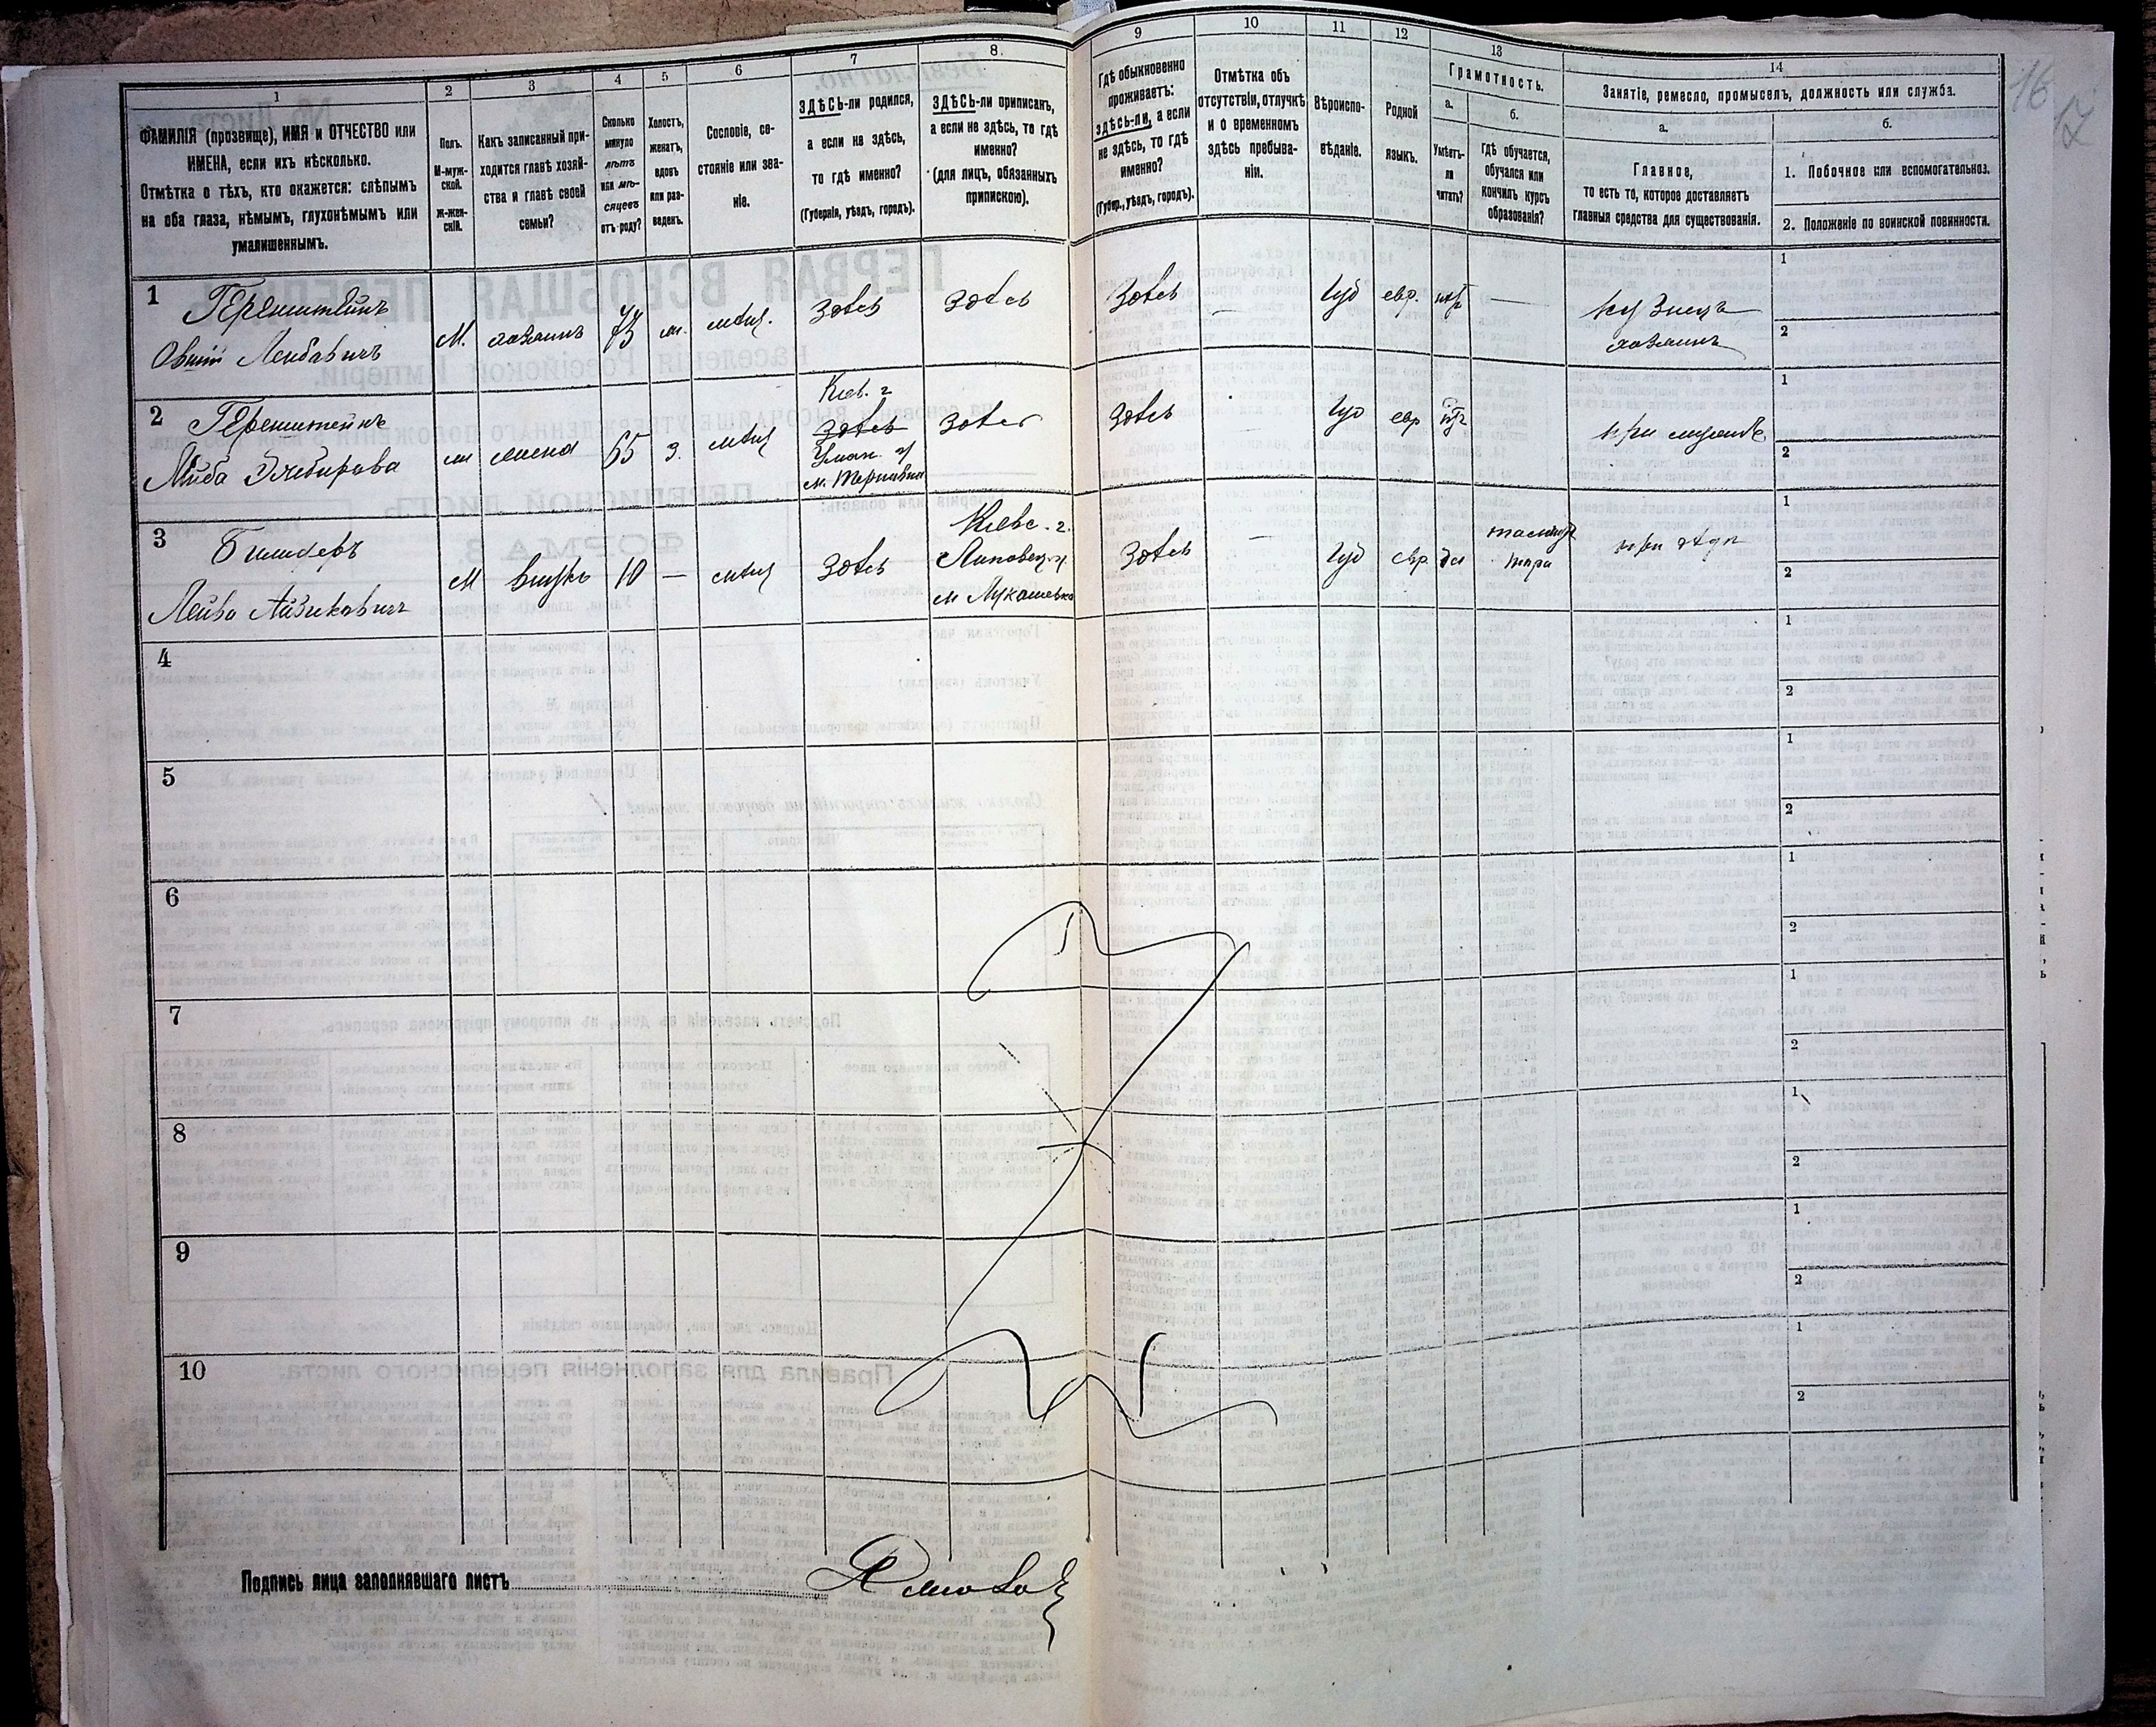 1
ФАМИЛІЯ (прозвище), ИМЯ и ОТЧЕСТВО или
ИМЕНА, если ихъ нѣсколько.
Отмѣтка о тѣхъ, кто окажется: слѣпымъ
на оба глаза, нѣмымъ, глухонѣмымъ или
умалишеннымъ.
2
Полъ.
М-муж-
ской.
Ж-жен-
скій.
3
Какъ записанный при-
ходится главѣ хозяй-
ства и главѣ своей
семьи?
4
Сколько
минуло
лѣтъ
или мѣ-
сяцевъ
отъ роду?
5
Холостъ,
женатъ,
вдовъ
или раз-
веденъ.
6
Сословіе, со-
стояніе или зва-
ніе.
7
ЗДѢСЬ-ли родился,
а если не здѣсь,
то гдѣ именно?
(Губернія, уѣздъ, городъ).
8.
ЗДѢСЬ-ли приписанъ,
а если не здѣсь, то гдѣ
именно?
(для лицъ, обязанныхъ
припискою).
9
Гдѣ обыкновенно
проживаетъ:
здѣсь-ли, а если
не здѣсь, то гдѣ
именно?
(Губер., уѣздъ, городъ).
10
Отмѣтка объ
отсутствіи, отлучкѣ
и о временномъ
здѣсь пребыва-
ніи.
11
Вѣроиспо-
вѣданіе.
12
Родной
языкъ.
13
Грамотность.
а.
Умѣетъ-
ли
читать?
б.
гдѣ обучается,
обучался или
кончилъ курсъ
образованія?
14
Занятіе, ремесло, промыселъ, должность или служба.
а.
Главное,
то есть то, которое доставляетъ
главныя средства для существованія.
б.
1. Побочное или вспомогательное.
2. Положеніе по воинской повинности.
16
17
1
Герштейнъ
Лейбовичъ
М. хозяинъ 73 ж. мѣщ. здѣсь здѣсь здѣсь — іуд евр. нѣтъ —
кузнецъ
хозяинъ
1
2
2
Герштейнъ
м жена 65 з. мѣщ
Кіев. г
здѣсь
Уман. у
м. Терновка
здѣсь здѣсь — іуд евр нѣтъ
при мужѣ
1
2
3
Лейба Айзиковичъ
М внукъ 10 — мѣщ здѣсь
Кіевс. г.
Липовец. у.
м Лукашевка
здѣсь — іуд евр да
при дѣдѣ
1
2
4
1
2
5
1
2
6
1
2
7
1
2
8
1
2
9
1
2
10
1
2
Подпись лица заполнявшаго листъ